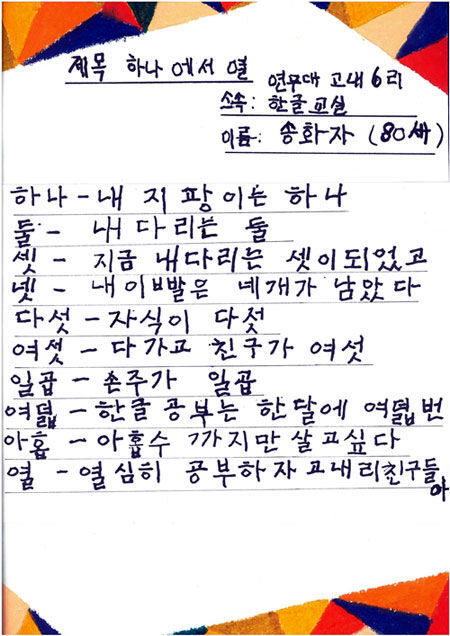 제목 하나에서 열
연무대 고내6리
소속: 한글교실
이름: 송화자 (80세)
하나 - 내 지팡이는 하나
둘 - 내 다리는 둘
셋 - 지금 내다리는 셋이되었고
넷 - 내이빨은 네개가 남았다
다섯 - 자식이 다섯
여섯 - 다가고 친구가 여섯
일곱 - 손주가 일곱
여덟 - 한글공부는 한달에 여덟번
아흡 - 아흡수 까지만 살고싶다
열 - 열심히 공부하자 고내리친구들아